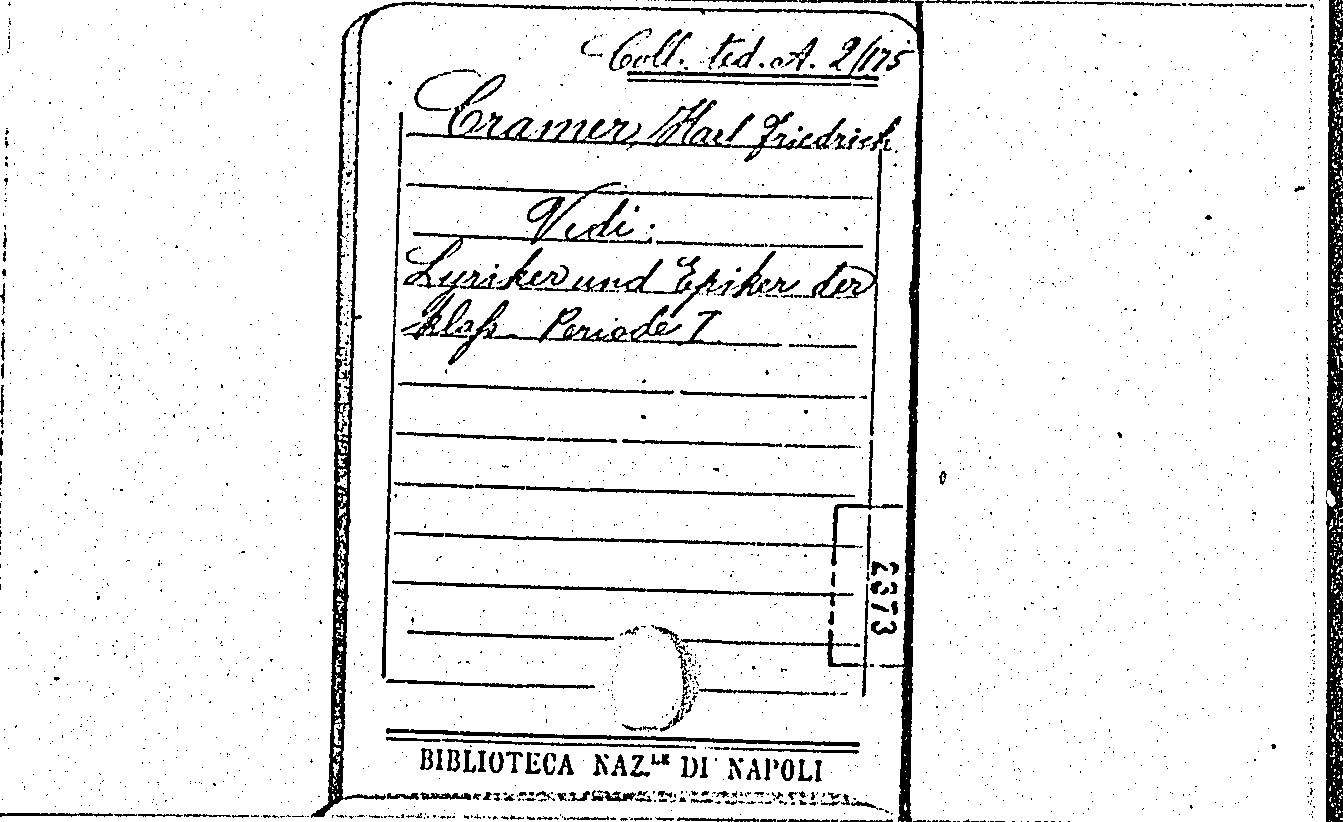 Coll. ted. A. 2/175
Cramer, Karl Friedrich
Vedi:
Lyriker und Epiker der
klaß. Periode I
2373
BIBLIOTECA NAZ.LE DI NAPOLI